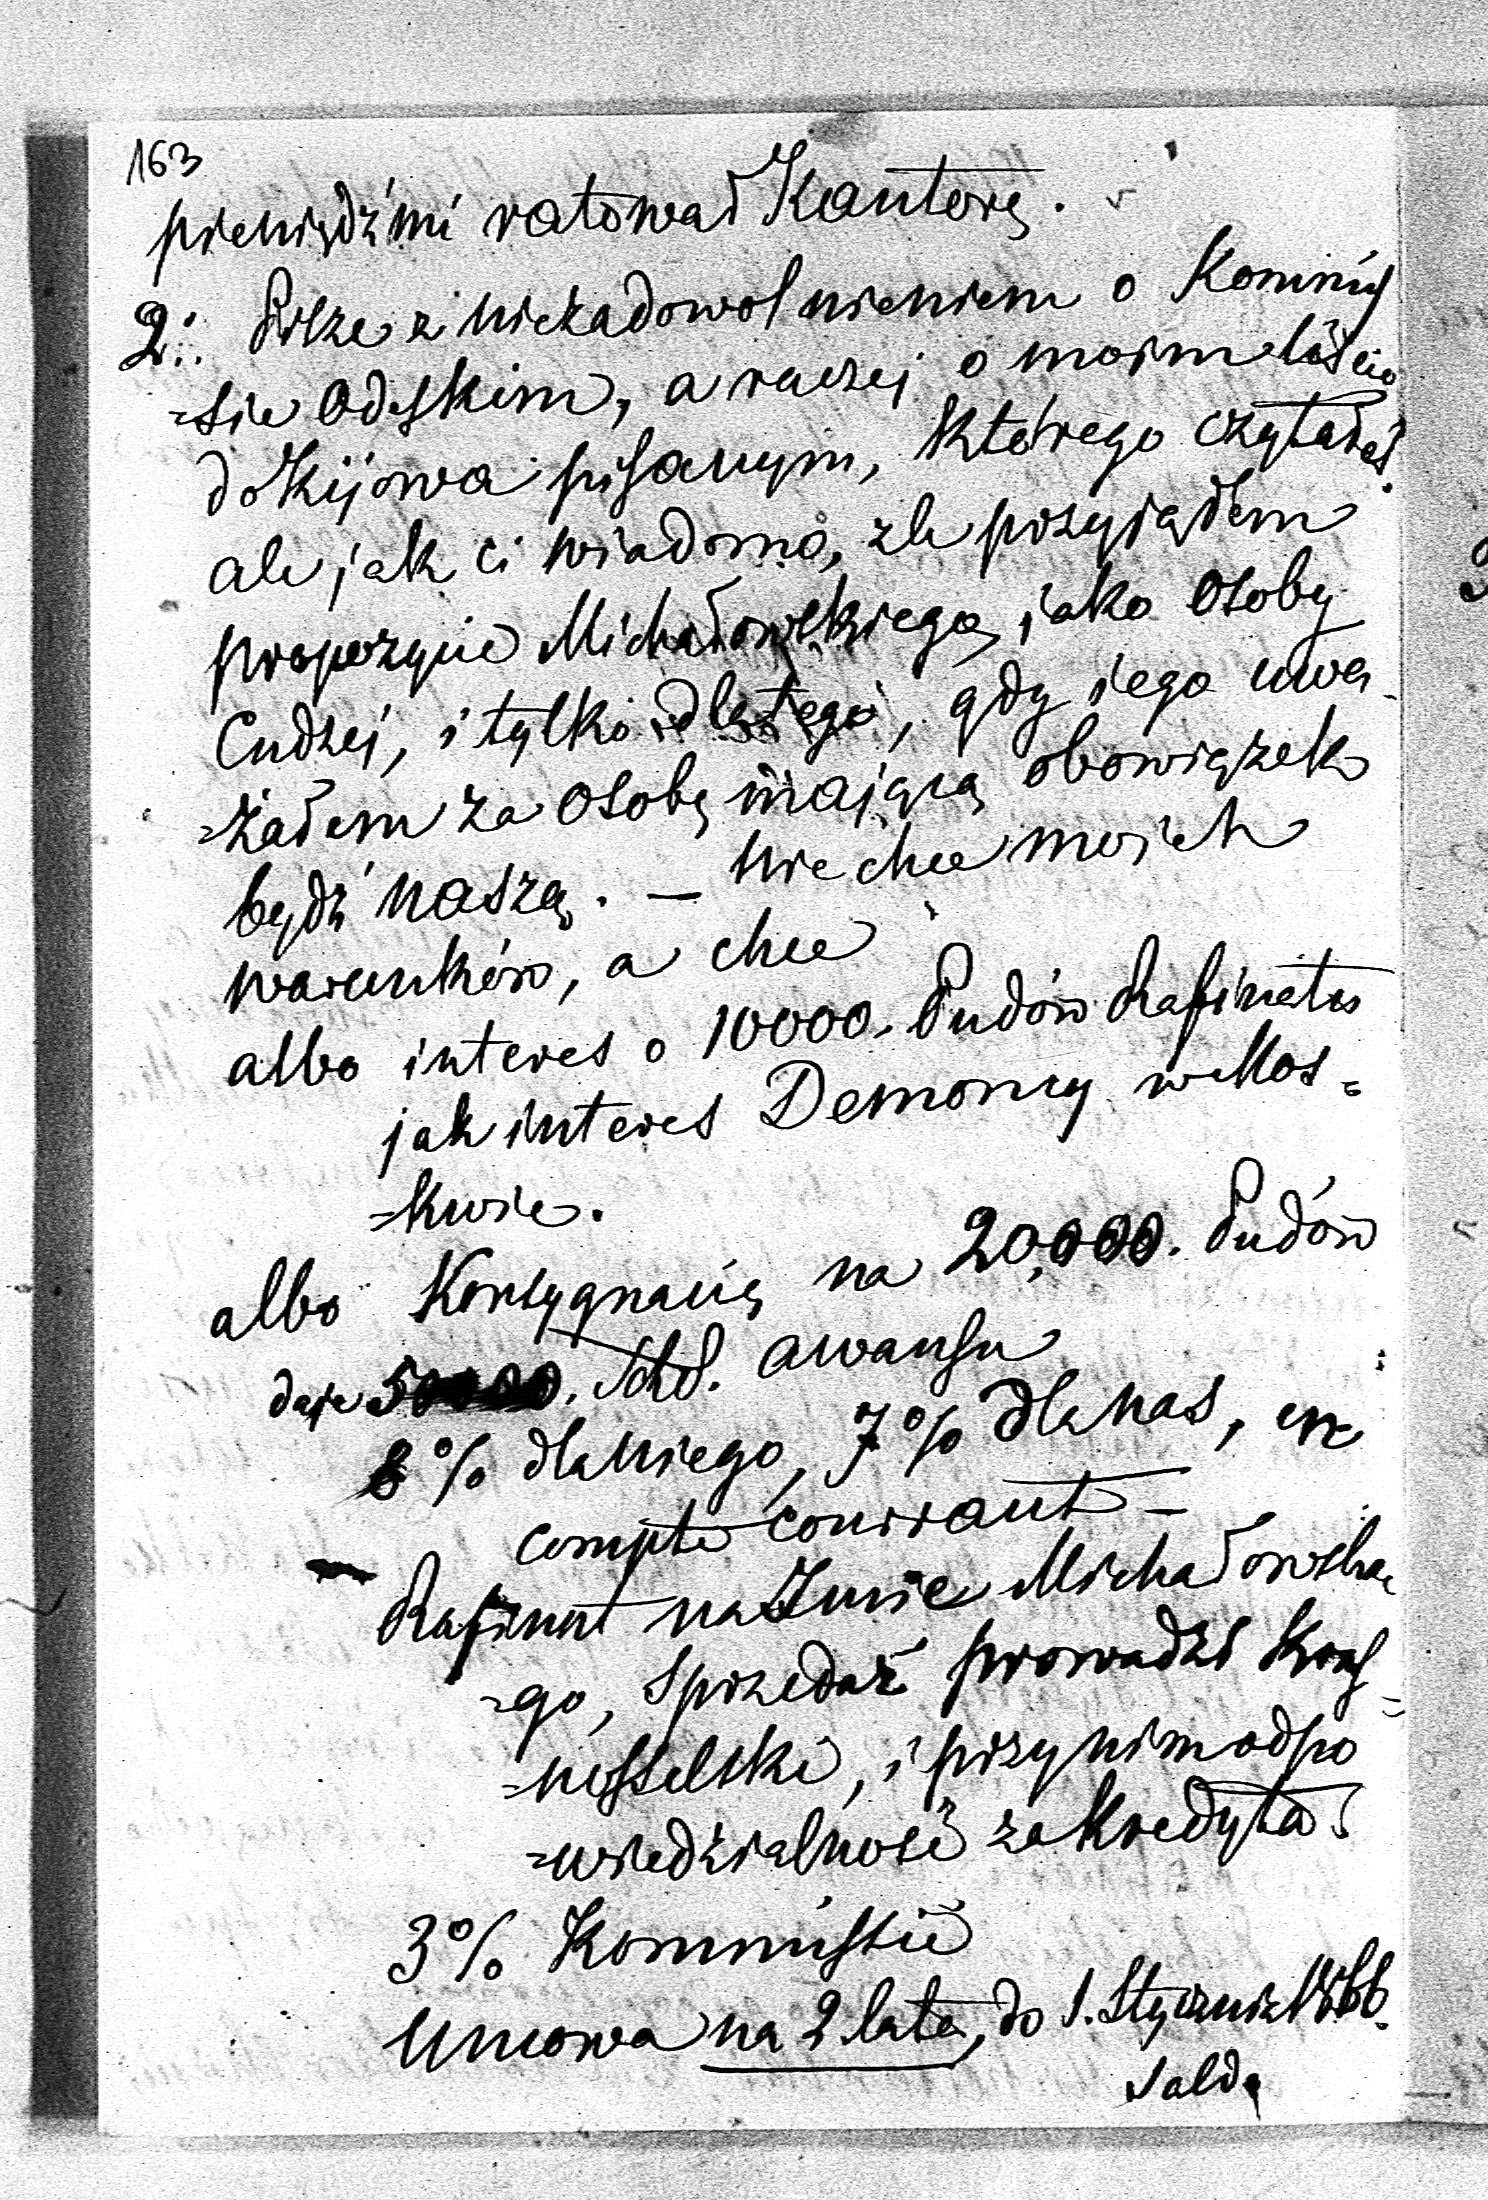 163
pieniędźmi ratował Kantorę.
2. Pisze z niezadowolnieniem o Kommis
=sie Odeskim, a raczej o moim liście
do Kijowa pisanym, którego czytałeś.
ale jak ci wiadomo, źle przyjąłem
propozycie Michałowskiego, jako osoby
Cudzej, i tylko dlatego, gdy jego uwa
=żałem za osobę mającą obowiązek
bydź naszą. — Nie chce moich
warunków, a chce
albo interes o 10000. Pudów Rafinatu
jak interes Demoncy w Mos=
=kwie.
albo Konsygnacią na 20,000. Pudów
daje 50000. awansu
8% dla niego, 7% dla nas, en
compte courrant —
Rafinat na Imie Michałowskie
=go, Sprzedaż prowadzi Kras
=nosselski, i przy nim odpo
=wiedzialność za kredyta
3% Kommissie
Umowa na 2 lata, do 1. Stycznia 1866.
Salda